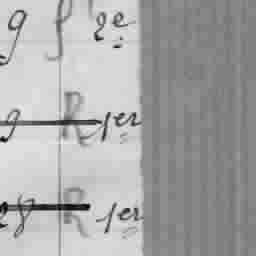 9 P 2e
9 R 1er
28 R 1er